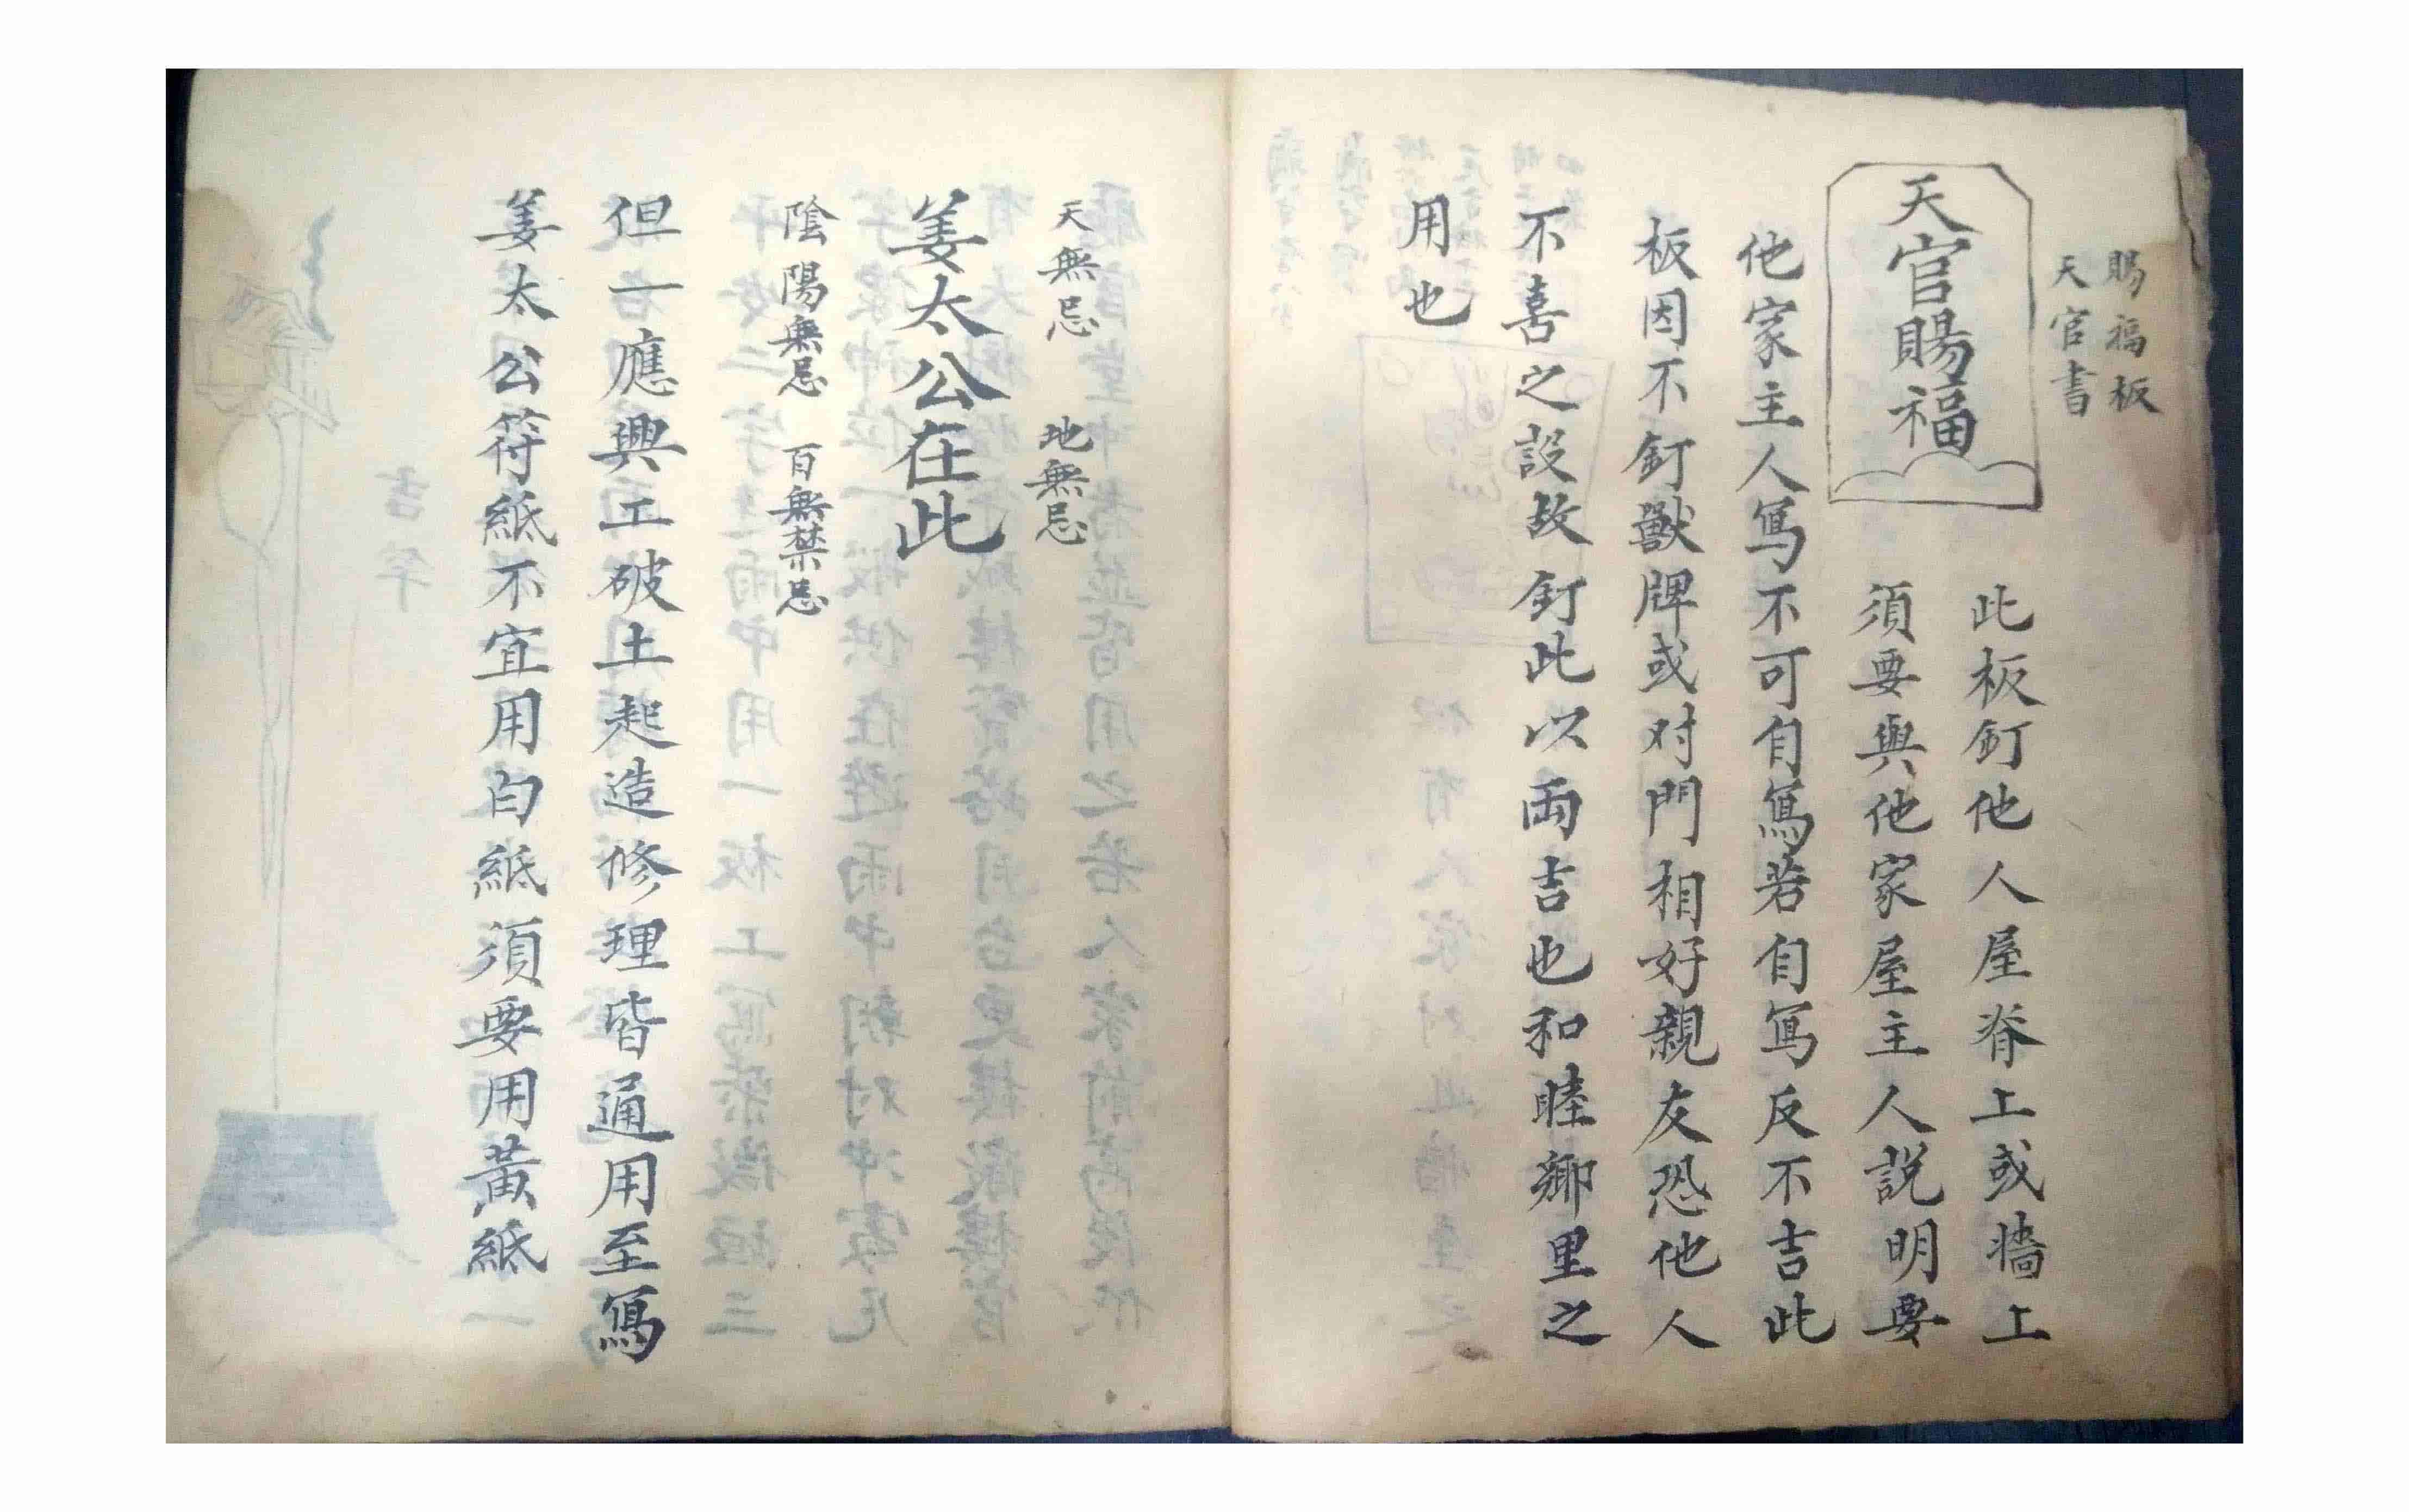 賜福板
天官書
天官賜福
此板釘他人屋脊上或墻上
須要與他家屋主人説明要
他家主人寫不可自寫若自寫反不吉此
板因不釘獸牌或对門相好親友恐他人
不喜之設故釘此以両吉也和睦鄉里之
用也
天無忌 地無忌
姜太公在此
陰陽無忌 百無禁忌
但一應興工破土起造修理皆通用至寫
姜太公符紙不宜用白紙須要用黃紙